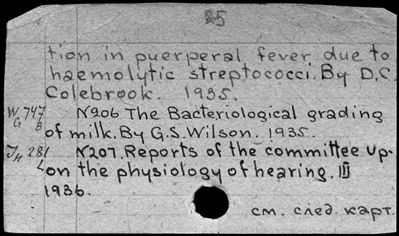 25
tion in puerperal fever due to
haemolytic streptococci. By D.C.
Colebrook. 1935.
W 747 №206 The Bacteriological grading
G B of milk. By G.S. Wilson. 1935.
281 №207. Reports of the committee up-
L on the physiology of hearing. III
1936.
см. след. карт.